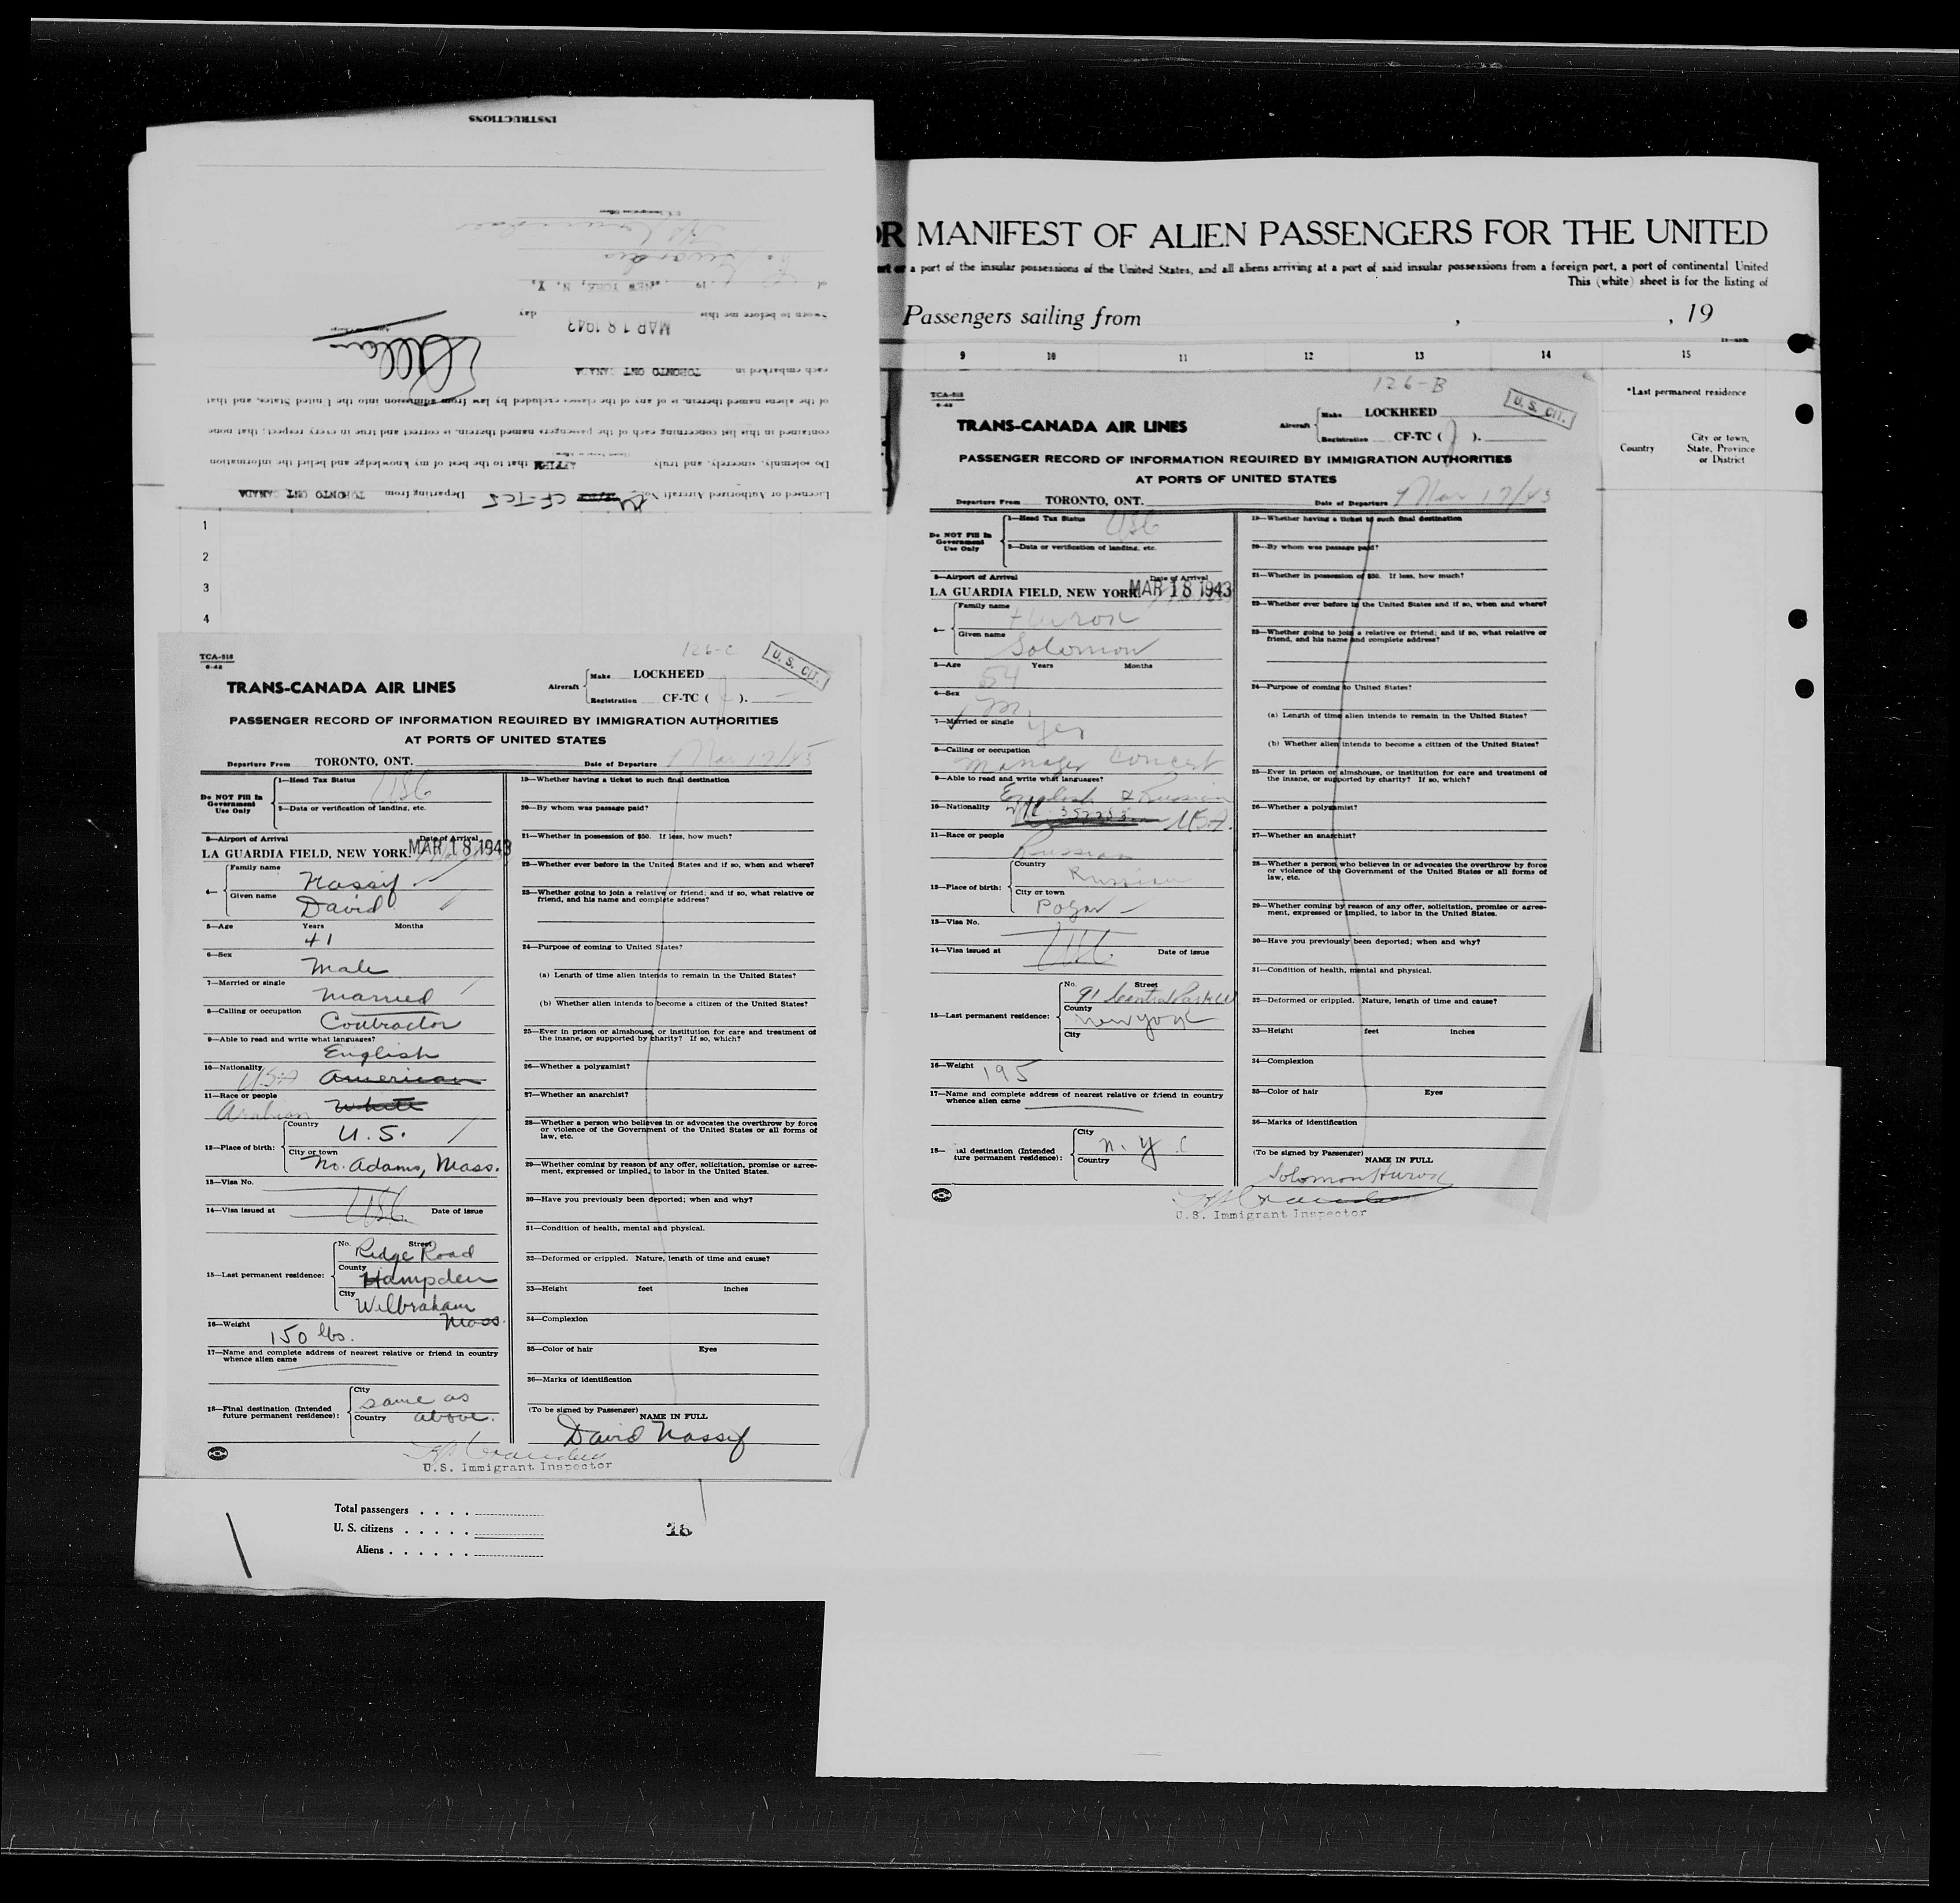 INSTRUCTIONS
U. S. Immigration Officer
at NEW YORK, N. Y.
Sworn to before me this MAR 18 1943 day
each embarked in TORONTO ONT CANADA
of the aliens named therein, is of any of the classes excluded by law from admission into the United States, and that
contained in this list concerning each of the passengers named therein, is correct and true in every respect; that none
Do solemnly, sincerely, and truly AFFIRM that to the best of my knowledge and belief the information
Licensed or Authorized Aircraft No. CF-TCJ Departing from TORONTO ONT CANADA
1
2
3
4
TCA-518
6-42
126-C
U. S. CIT.
TRANS-CANADA AIR LINES
Aircraft
Make LOCKHEED
Registration CF-TC ( J ).
PASSENGER RECORD OF INFORMATION REQUIRED BY IMMIGRATION AUTHORITIES
AT PORTS OF UNITED STATES
Departure From TORONTO, ONT.
Date of Departure Mar 17/43
Do NOT Fill In
Government
Use Only
1—Head Tax Status USC
2—Data or verification of landing, etc.
3—Airport of Arrival
Date of Arrival
LA GUARDIA FIELD, NEW YORK. MAR 18 1943
4—
Family name Nassif
Given name David
5—Age Years Months
41
6—Sex
Male
7—Married or single
married
8—Calling or occupation
Contractor
9—Able to read and write what languages?
English
10—Nationality
U.S.A American
11—Race or people
Arabian White
12—Place of birth:
Country
U. S.
City or town
No. Adams, Mass.
13—Visa No.
14—Visa issued at USC Date of issue
15—Last permanent residence:
No. Street
Ridge Road
County
Hampden
City
Wilbraham
Mass.
16—Weight
150 lbs.
17—Name and complete address of nearest relative or friend in country
whence alien came
18—Final destination (Intended
future permanent residence):
City
same as
Country above.
19—Whether having a ticket to such final destination
20—By whom was passage paid?
21—Whether in possession of $50. If less, how much?
22—Whether ever before in the United States and if so, when and where?
23—Whether going to join a relative or friend; and if so, what relative or
friend, and his name and complete address?
24—Purpose of coming to United States?
(a) Length of time alien intends to remain in the United States?
(b) Whether alien intends to become a citizen of the United States?
25—Ever in prison or almshouse, or institution for care and treatment of
the insane, or supported by charity? If so, which?
26—Whether a polygamist?
27—Whether an anarchist?
28—Whether a person who believes in or advocates the overthrow by force
or violence of the Government of the United States or all forms of
law, etc.
29—Whether coming by reason of any offer, solicitation, promise or agree-
ment, expressed or implied, to labor in the United States.
30—Have you previously been deported; when and why?
31—Condition of health, mental and physical.
32—Deformed or crippled. Nature, length of time and cause?
33—Height feet inches
34—Complexion
35—Color of hair Eyes
36—Marks of identification
(To be signed by Passenger)
NAME IN FULL
David Nassif
U.S. Immigrant Inspector
Total passengers
U. S. citizens
Aliens
16
OR MANIFEST OF ALIEN PASSENGERS FOR THE UNITED
ort or a port of the insular possessions of the United States, and all aliens arriving at a port of said insular possessions from a foreign port, a port of continental United
This (white) sheet is for the listing of
Passengers sailing from , , 19
9 10 11 12 13 14 15
*Last permanent residence
Country
City or town,
State, Province
or District
TCA-518
6-42
126-B
U. S. CIT.
TRANS-CANADA AIR LINES
Aircraft
Make LOCKHEED
Registration CF-TC ( J ).
PASSENGER RECORD OF INFORMATION REQUIRED BY IMMIGRATION AUTHORITIES
AT PORTS OF UNITED STATES
Departure From TORONTO, ONT.
Date of Departure Mar 17/43
Do NOT Fill In
Government
Use Only
1—Head Tax Status USC
2—Data or verification of landing, etc.
3—Airport of Arrival
Date of Arrival
LA GUARDIA FIELD, NEW YORK. MAR 18 1943
4—
Family name
Hurok
Given name
Solomon
5—Age Years Months
54
6—Sex
M
7—Married or single
yes
8—Calling or occupation
Manager Concert
9—Able to read and write what languages?
English & Russian
10—Nationality
U.S.A.
11—Race or people
Russian
12—Place of birth:
Country
Russian
City or town
Pogar
13—Visa No.
14—Visa issued at USC Date of issue
15—Last permanent residence:
No. Street
91 Central Park W
County
New York
City
16—Weight
195
17—Name and complete address of nearest relative or friend in country
whence alien came
18— ial destination (Intended
ture permanent residence):
City
N. Y C
Country
19—Whether having a ticket to such final destination
20—By whom was passage paid?
21—Whether in possession of $50. If less, how much?
22—Whether ever before in the United States and if so, when and where?
23—Whether going to join a relative or friend; and if so, what relative or
friend, and his name and complete address?
24—Purpose of coming to United States?
(a) Length of time alien intends to remain in the United States?
(b) Whether alien intends to become a citizen of the United States?
25—Ever in prison or almshouse, or institution for care and treatment of
the insane, or supported by charity? If so, which?
26—Whether a polygamist?
27—Whether an anarchist?
28—Whether a person who believes in or advocates the overthrow by force
or violence of the Government of the United States or all forms of
law, etc.
29—Whether coming by reason of any offer, solicitation, promise or agree-
ment, expressed or implied, to labor in the United States.
30—Have you previously been deported; when and why?
31—Condition of health, mental and physical.
32—Deformed or crippled. Nature, length of time and cause?
33—Height feet inches
34—Complexion
35—Color of hair Eyes
36—Marks of identification
(To be signed by Passenger)
NAME IN FULL
Solomon Hurok
U.S. Immigrant Inspector